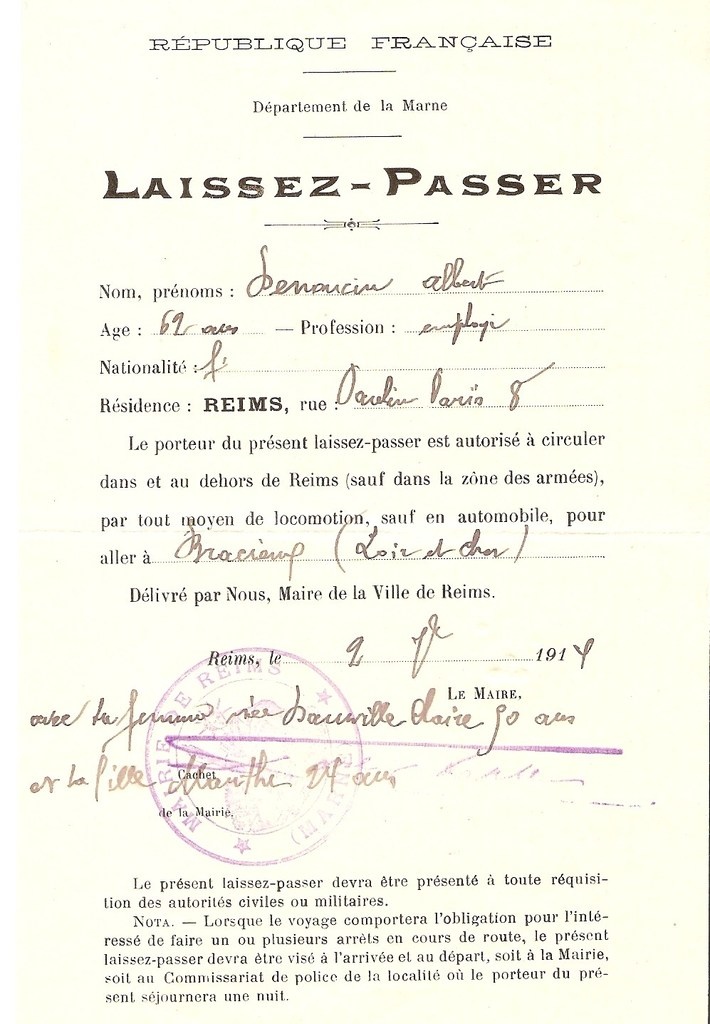 RÉPUBLIQUE FRANÇAISE
Département de la Marne
LAISSEZ-PASSER
Nom, prénoms : Denoncin albert
Age : 62 ans — Profession : employé
Nationalité : f
Résidence : REIMS, rue : Paulin Paris 8
Le porteur du présent laissez-passer est autorisé à circuler
dans et au dehors de Reims (sauf dans la zône des armées),
par tout moyen de locomotion, sauf en automobile, pour
aller à Bracieux (Loir et cher)
Délivré par Nous, Maire de la Ville de Reims.
Reims, le 2 1914
LE MAIRE,
avec sa femme née Claire 50 ans
et sa fille Marthe 24 ans
Cachet
de la Mairie.
MAIRIE DE REIMS
(MARNE)
Le présent laissez-passer devra être présenté à toute réquisi-
tion des autorités civiles ou militaires.
NOTA. — Lorsque le voyage comportera l'obligation pour l'inté-
ressé de faire un ou plusieurs arrêts en cours de route, le présent
laissez-passer devra être visé à l'arrivée et au départ, soit à la Mairie,
soit au Commissariat de police de la localité où le porteur du pré-
sent séjournera une nuit.